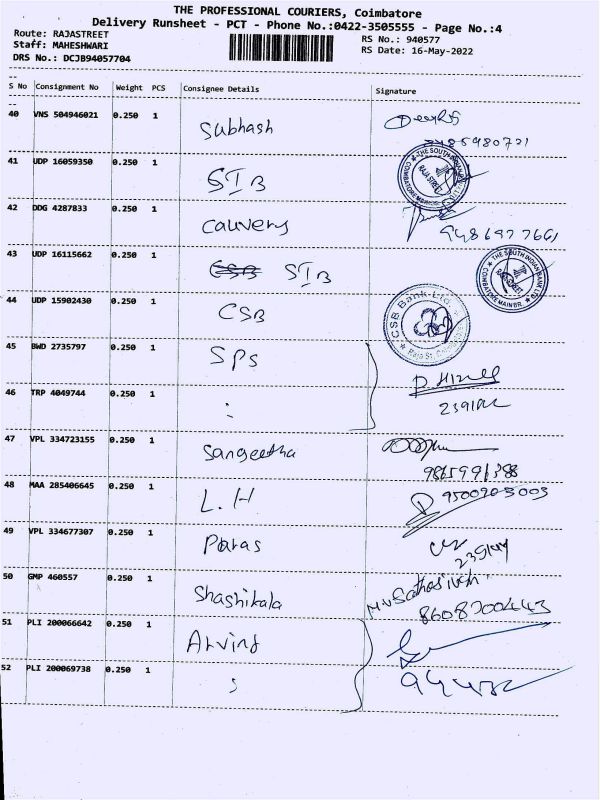 THE PROFESSIONAL COURIERS, Coimbatore
Delivery Runsheet - PCT - Phone No.:0422-3505555 - Page No.:4
Route: RAJASTREET
RS No.: 940577
Staff: MAHESHWARI
RS Date: 16-May-2022
DRS No.: DCJB94057704
S No Consignment No Weight PCS Consignee Details Signature
40 VNS 504946021 0.250 1 Subhash
41 UDP 16059350 0.250 1 SIB
THE SOUTH INDIAN
RAJA STREET
COIMBATORE MAIN BR
42 DDG 4287833 0.250 1 Cauvery
43 UDP 16115662 0.250 1 CSB SIB
THE SOUTH INDIAN BANK LTD
COIMBATORE MAIN BR
44 UDP 15902430 0.250 1 CSB
CSB Bank Ltd.
Raja St.
45 BWD 2735797 0.250 1 SPS
46 TRP 4049744 0.250 1 :
47 VPL 334723155 0.250 1 Sangeetha
48 MAA 285406645 0.250 1 L.H
9500205003
49 VPL 334677307 0.250 1 Paras
50 GMP 460557 0.250 1 Shashikala
8608700443
51 PLI 200066642 0.250 1 Arvind
52 PLI 200069738 0.250 1 ;